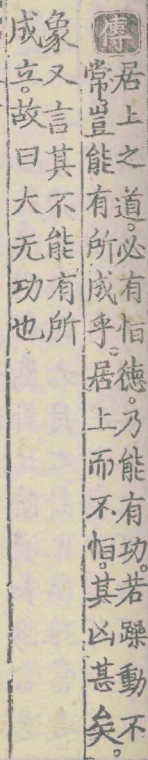 傳
居上之道。必有恒德。乃能有功。若躁動不
常。豈能有所成乎。居上而不恒。其凶甚矣。
象又言其不能有所
成立。故曰大无功也